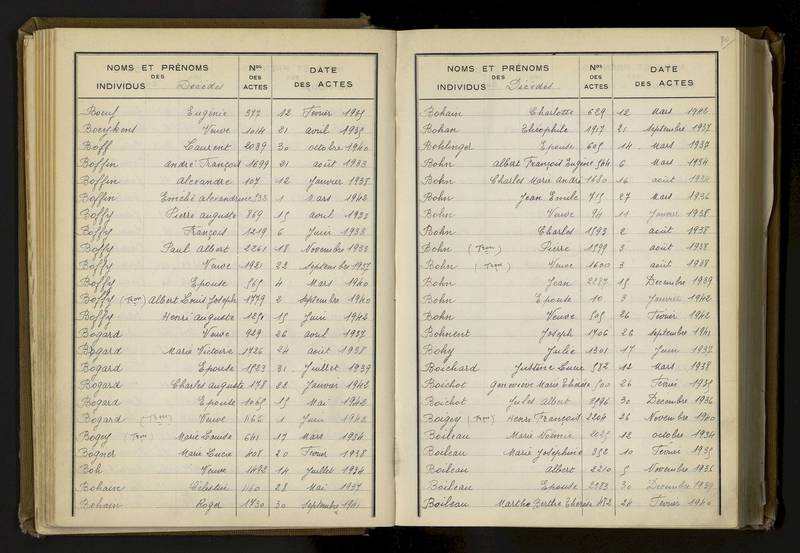 NOMS ET PRÉNOMS DES INDIVIDUS Décédés Nos DES ACTES DATE DES ACTES
Boeuf Eugénie 377 12 Fevrier 1935
Boeykens Veuve 1014 21 avril 1935
Boff Laurent 2039 30 octobre 1940
Boffin André François 1699 21 août 1933
Boffin Alexandre 107 12 Janvier 1938
Boffin Emelie Alexandrine 533 1 Mars 1942
Boffy Pierre Auguste 869 15 avril 1933
Boffy François 1219 6 Juin 1933
Boffy Paul Albert 2261 18 Novembre 1933
Boffy Veuve 1921 22 Septembre 1937
Boffy Epouse 565 4 Mars 1940
Boffy (Tron) Albert Louis Joseph 1779 2 Septembre 1940
Boffy Henri Auguste 1250 15 Juin 1942
Bogard Veuve 929 26 avril 1937
Bogard Marie Victoire 1726 24 août 1938
Bogard Epouse 1523 31 Juillet 1939
Bogard Charles Auguste 178 22 Janvier 1942
Bogard Epouse 1065 15 Mai 1942
Bogard (Tron) Veuve 1166 1 Juin 1942
Bogey (Tron) Marie Louise 641 17 Mars 1934
Bogner Marie Lucie 408 20 Fevrier 1938
Boh Veuve 1492 14 Juillet 1934
Bohain Célestin 1160 28 Mai 1937
Bohain Roger 1730 30 Septembre 1941
NOMS ET PRÉNOMS DES INDIVIDUS Décédés Nos DES ACTES DATE DES ACTES
Bohain Charlotte 629 12 Mars 1942
Bohan Théophile 1917 21 Septembre 1937
Bohlinger Epouse 605 14 Mars 1937
Bohn Albert François Eugène 544 6 Mars 1934
Bohn Charles Marie André 1680 16 août 1934
Bohn Jean Emile 715 27 Mars 1936
Bohn Veuve 94 11 Janvier 1938
Bohn Charles 1593 2 août 1938
Bohn (Tron) Pierre 1599 3 août 1938
Bohn (Tron) Veuve 1600 3 août 1938
Bohn Jean 2287 15 Decembre 1939
Bohn Epouse 10 3 Janvier 1942
Bohn Veuve 505 26 Fevrier 1942
Bohnert Joseph 1706 26 Septembre 1941
Bohy Julie 1301 17 Juin 1937
Boichard Justine Lucie 582 12 Mars 1938
Boichot Genevieve Marie 500 26 Fevrier 1935
Boichot Jules Albert 2596 30 Decembre 1936
Boigey (Tron) Henri François 2204 26 Novembre 1940
Boileau Marie Noémie 2025 12 octobre 1934
Boileau Marie Josephine 352 10 Fevrier 1935
Boileau Albert 2210 5 Novembre 1936
Boileau Epouse 2383 30 Decembre 1939
Boileau Marthe Berthe Thérèse 482 24 Fevrier 1940